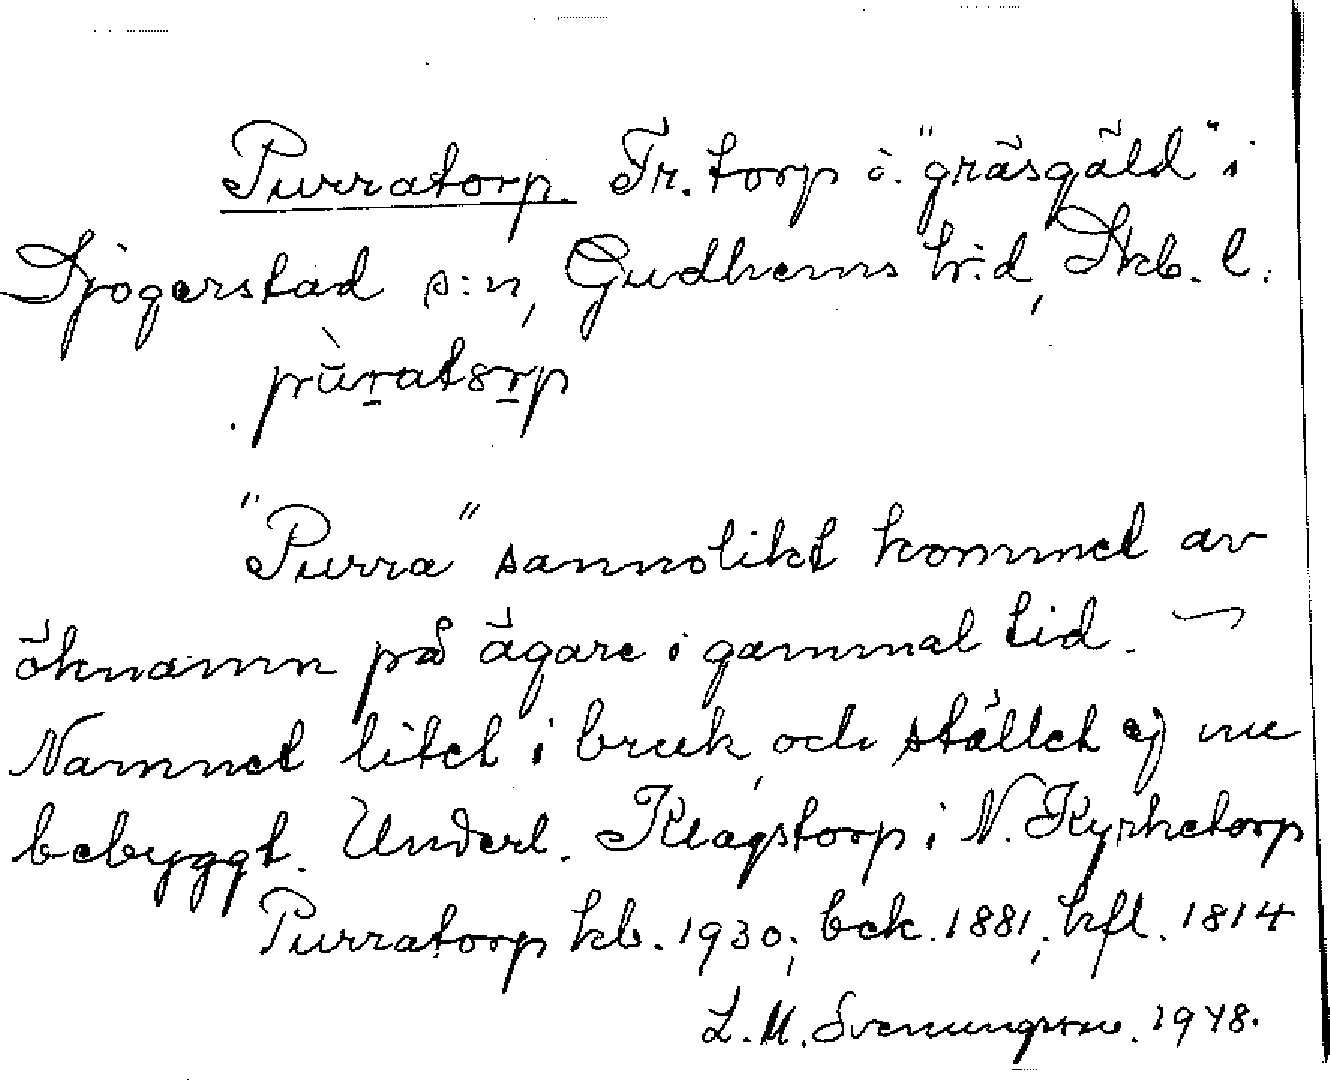 Purratorp. Fr. torp o. "gräsgäld" i
Sjögerstad s:n, Gudhems h:d, Skb. l.
pùratorp
"Purra" sannolikt kommet av
öknamn på ägare i gammal tid. —
Namnet litet i bruk, och stället ej nu
bebyggt. Underl. Klagstorp i N. Kyrketorp
Purratorp kb. 1930; bek. 1881; kfl. 1814
L. M. Svenungsson. 1948.